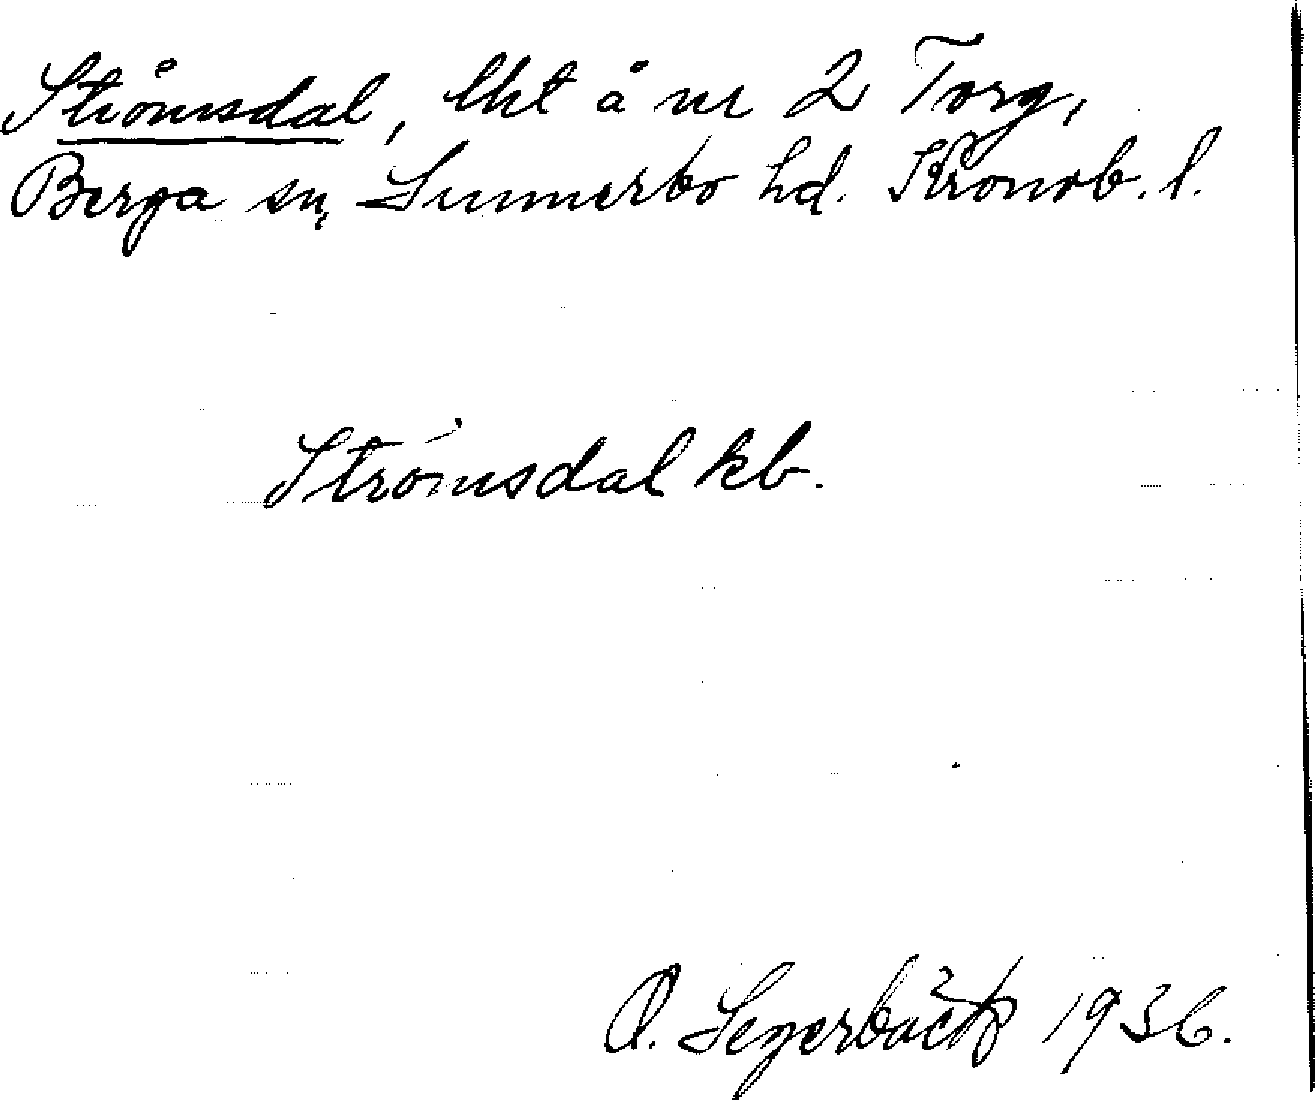 Strömsdal, lht å nr 2 Torg,
Berga sn, Sunnerbo hd. Kronob. l.
Strömsdal kb.
O. Segerbäck 1936.